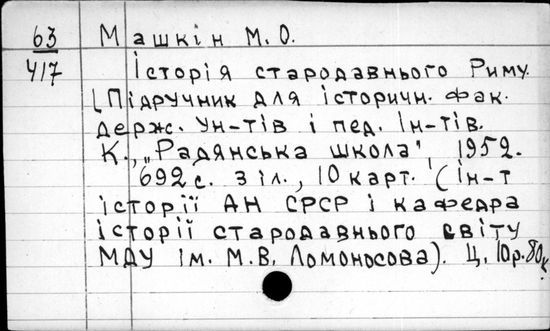 63 Машкін М. О.
417 Історія стародавнього Риму.
[Підручник для історичн. фак.
держ. ун-тів і пед. Ін-тів.
К., „Радянська школа", 1952.
692 с. з іл., 10 карт. (Ін-т
історії АН СРСР і кафедра
історії стародавнього світу
МДУ ім. М.В. Ломоносова). Ц. 10р.80к.